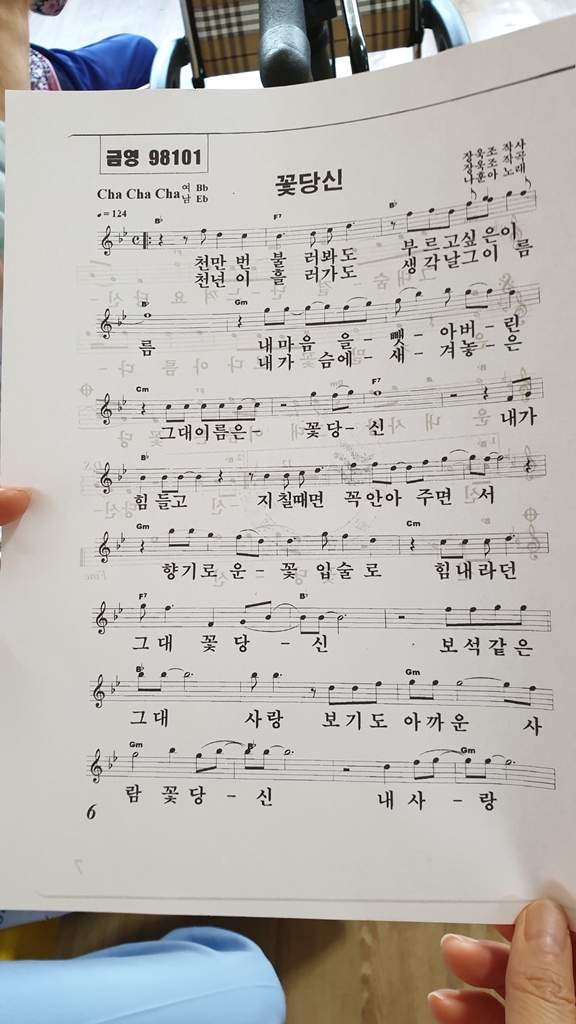 금영 98101
장욱조 작사
장욱조 작곡
나훈아 노래
Cha Cha Cha 여 Bb
남 Eb
꽃당신
♩= 124
B♭ F7 B♭
천만 번 불 러봐도 부르고싶은이
천년 이 흘 러가도 생각날그이 름
B♭ Gm
름 내마음 을- 뺏- 아버- 린
내가 슴에- 새- 겨놓- 은
Cm F7
그대이름은- 꽃당- 신 내가
B♭
힘들고 지칠때면 꼭안아 주면 서
Gm Cm
향기로 운- 꽃 입술 로 힘내라던
F7 B♭
그대 꽃 당 - 신 보석같은
B♭ Gm
그대 사랑 보기도 아까운 사
Gm B♭ Gm
람 꽃 당 - 신 내 사 - 랑
6
7
Fine